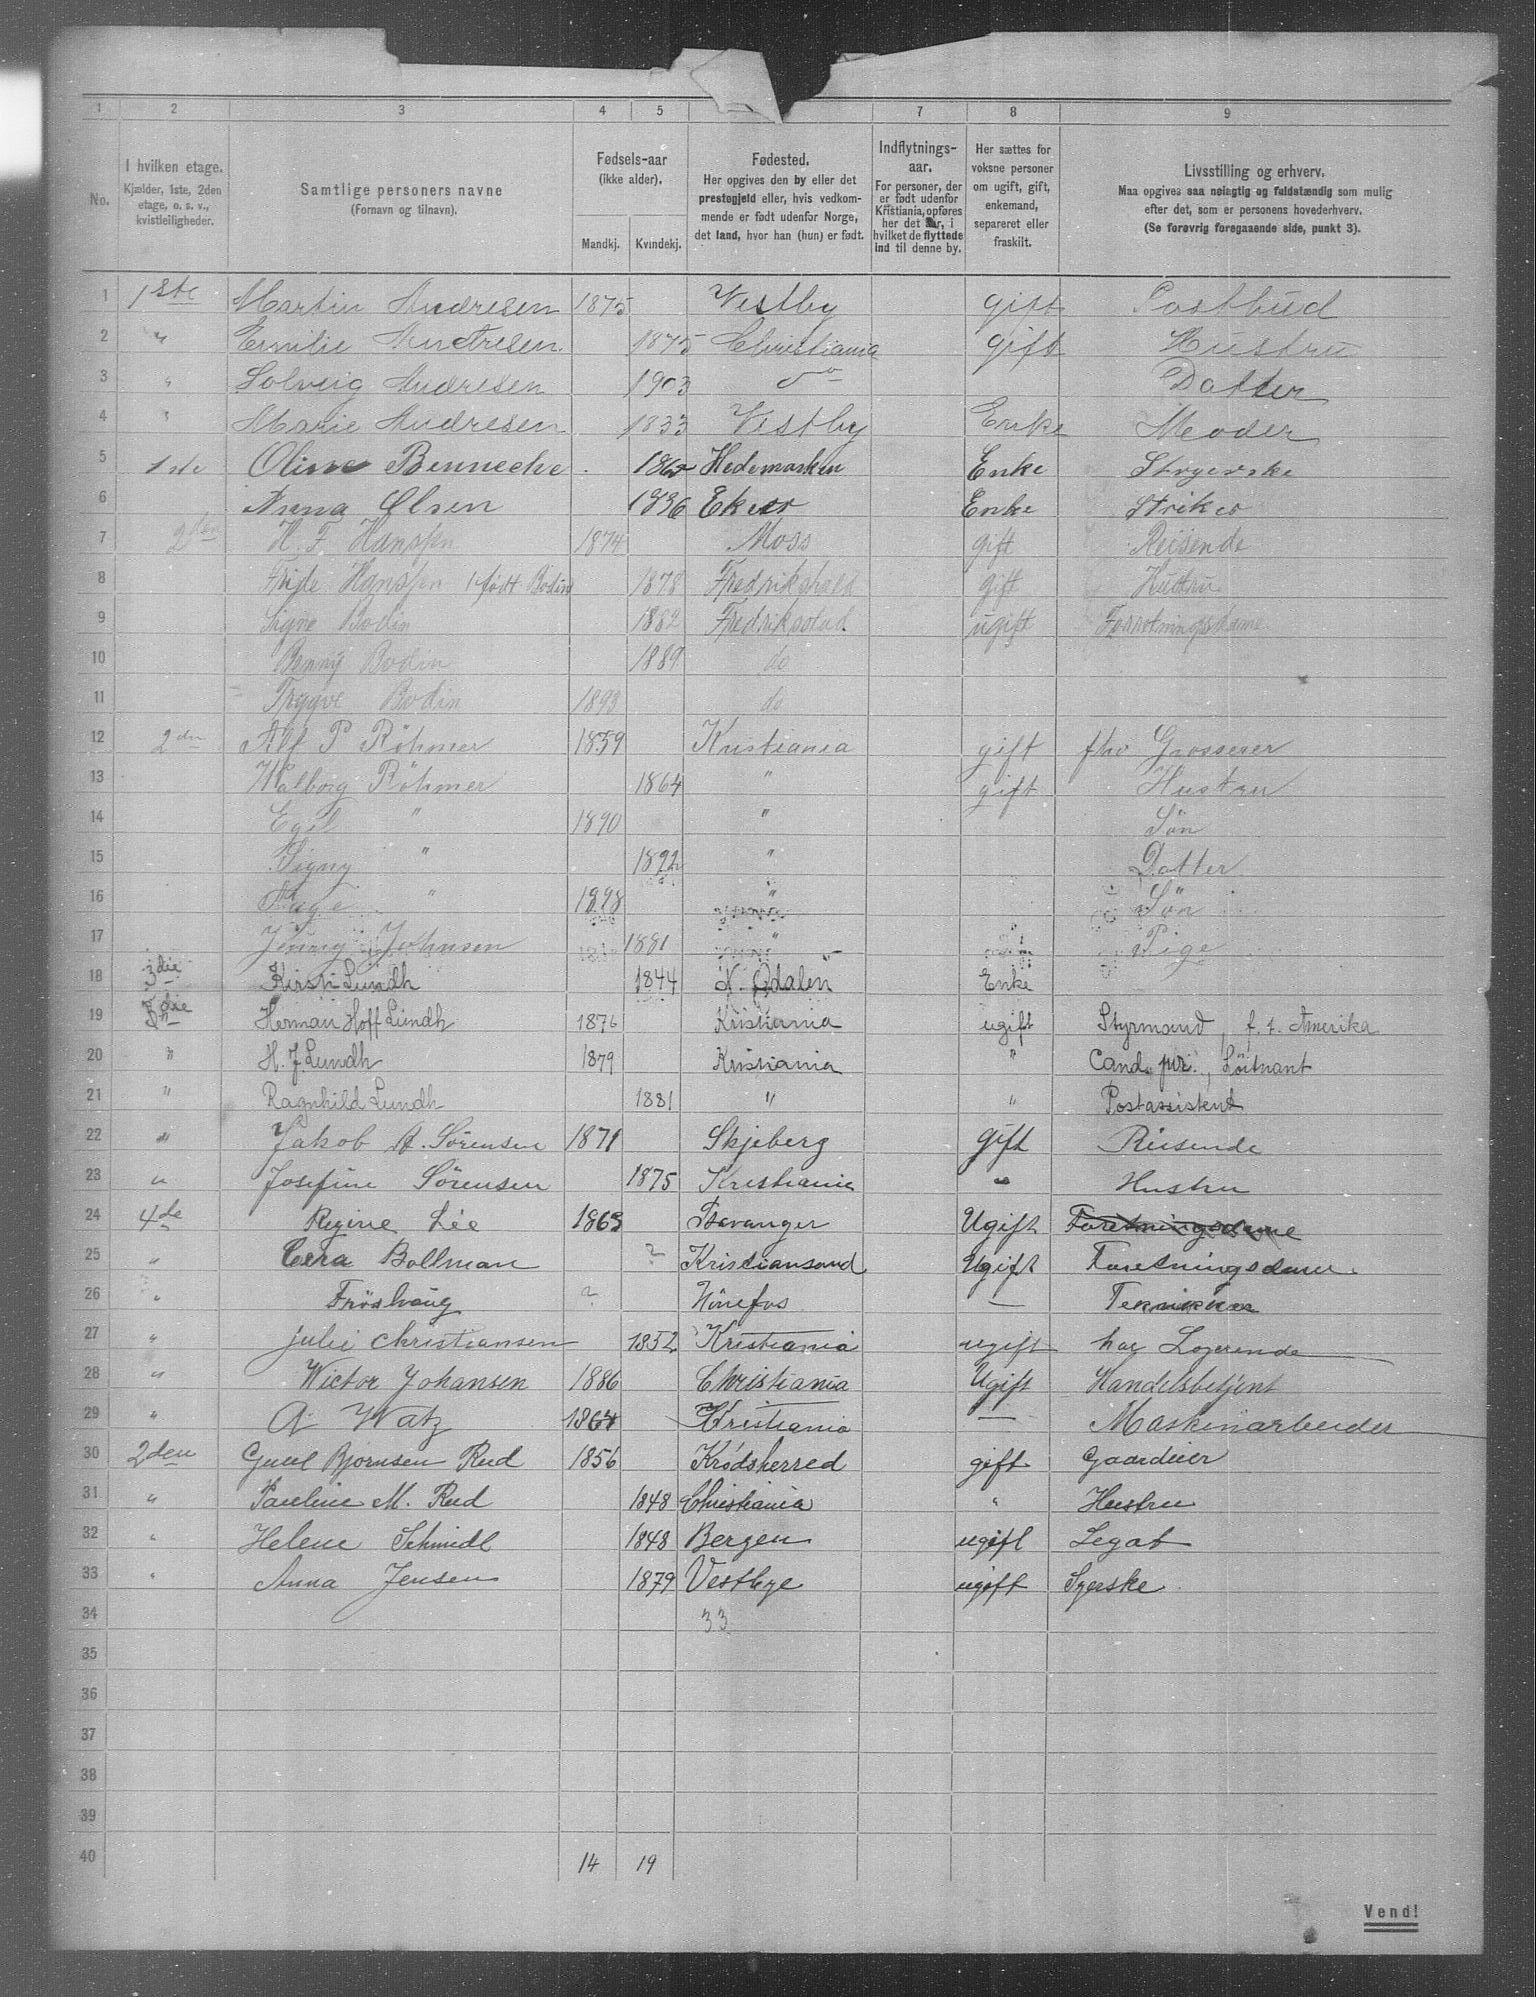 1 2 3 4 5 7 8 9
No.
I hvilken etage.
Kjælder, 1ste, 2den
etage, o. s. v.,
kvistleiligheder.
Samtlige personers navne
(Fornavn og tilnavn).
Fødsels-aar
(ikke alder).
Mandkj. Kvindekj.
Fødested.
Her opgives den by eller det
prestegjeld eller, hvis vedkom-
mende er født udenfor Norge,
det land, hvor han (hun) er født.
Indflytnings-
aar.
For personer, der
er født udenfor
Kristiania, opføres
her det aar, i
hvilket de flyttede
ind til denne by.
Her sættes for
voksne personer
om ugift, gift,
enkemand,
separeret eller
fraskilt.
Livsstilling og erhverv.
Maa opgives saa nøiagtig og fuldstændig som mulig
efter det, som er personens hovederhverv.
(Se forøvrig foregaaende side, punkt 3).
1 1ste Martin Andresen 1875 Vestby gift Postbud
2 " Emilie Andresen 1875 Christiania gift Hustru
3 " Solveig Andresen 1903 do Datter
4 " Marie Andresen 1833 Vestby Enke Moder
5 1ste Oline Bennecke 186 Hedemarken Enke Strygerske
6 Anna Olsen 1836 Eker Enke
7 2den H. F. Hanssen 1874 Moss gift Reisende
8 Hanssen født Bodin 1878 Fredrikshald gift Hustru
9 Signe Bodin 1882 Fredrikstad ugift Forretningsdame
10 Bodin 1889 do
11 Trygve Bodin 1893 do
12 2den Alf P Röhmer 1859 Kristiania gift fhv Grosserer
13 Walborg Röhmer 1864 " gift Hustru
14 Egil " 1890 " Søn
15 Signy " 1892 " Datter
16 Aage " 1898 " Søn
17 Jenny Johnsen 1881 " Pige
18 3die Kirsti Lundh 1844 N. Odalen Enke
19 3die Herman Hoff Lundh 1876 Kristiania ugift Styrmand, f. t. Amerika
20 " H. J. Lundh 1879 Kristiania " Cand. jur., Løitnant
21 " Ragnhild Lundh 1881 " " Postassistent
22 " Jakob A. Sörensen 1871 Skjeberg gift Reisende
23 " Josefine Sörensen 1875 Kristiania " Hustru
24 4de Regine Lie 1863 Stavanger Ugift Foretningsdame
25 " Bollman ? Kristiansand Ugift Foretningsdame
26 " Fröshaug ? Hönefos — Tekniker
27 " Julie Christiansen 1852 Kristiania ugift har Logerende
28 " Wictor Johansen 1886 Christiania Ugift Handelsbetjent
29 " A Watz 1864 Kristiania — Maskinarbeider
30 2den Guul Bjørnsen Rud 1856 Krødsherred gift Gaardeier
31 " Pauline M. Rud 1848 Christiania " Hustru
32 " Helene Schmidt 1848 Bergen ugift Legat
33 " Anna Jensen 1879 Vestbye ugift Syerske
34 33
35
36
37
38
39
40 14 19
Vend!